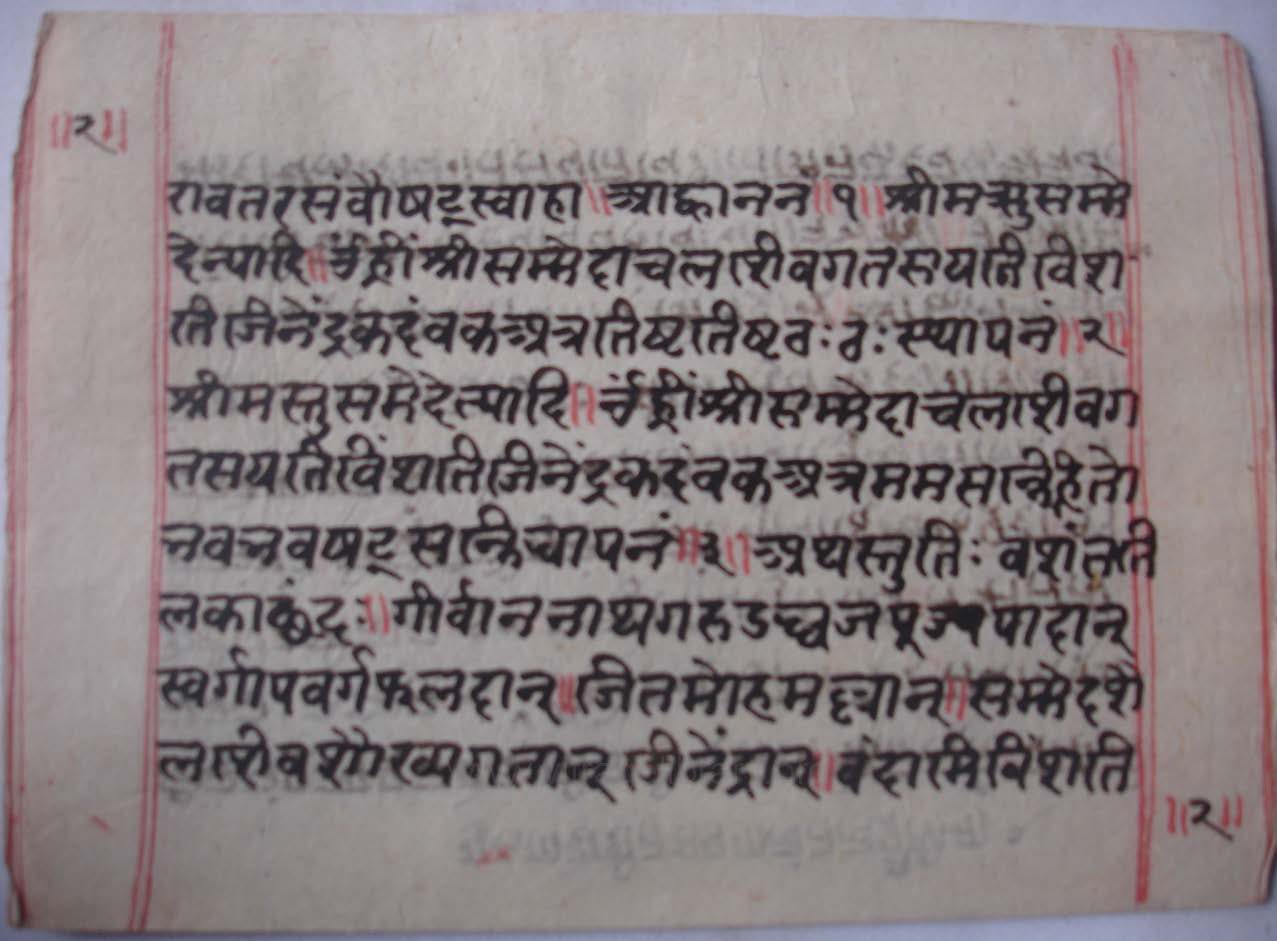 ॥२॥
रावतरसंवौषट्स्वाहा॥आह्वाननं॥१॥श्रीमत्सुसम्मे
देत्यादि॥ॐह्रींश्रीसम्मेदाचलशिवगतसयतिविश
तिजिनेंद्रकदंवकअत्रतिष्टतिष्टठःठःस्थापनं॥२
श्रीमत्सुसमेदेत्यादि॥ॐह्रींश्रीसम्मेदाचलशिवग
तसयतिविंशतिजिनेंद्रकदंवकअत्रममसान्निहितो
भवभववषट्सन्निधापनं॥३॥अथस्तुतिःवशंतति
लकाछंदः॥गीर्वाननाथगरुडध्वजपूज्यपादान्
स्वर्गापवर्गफलदान्॥जितमोहमद्यान्॥सम्मेदशै
लशिवशौख्यगतान्जिनेंद्रान्॥वंदामिविंशति
॥२॥